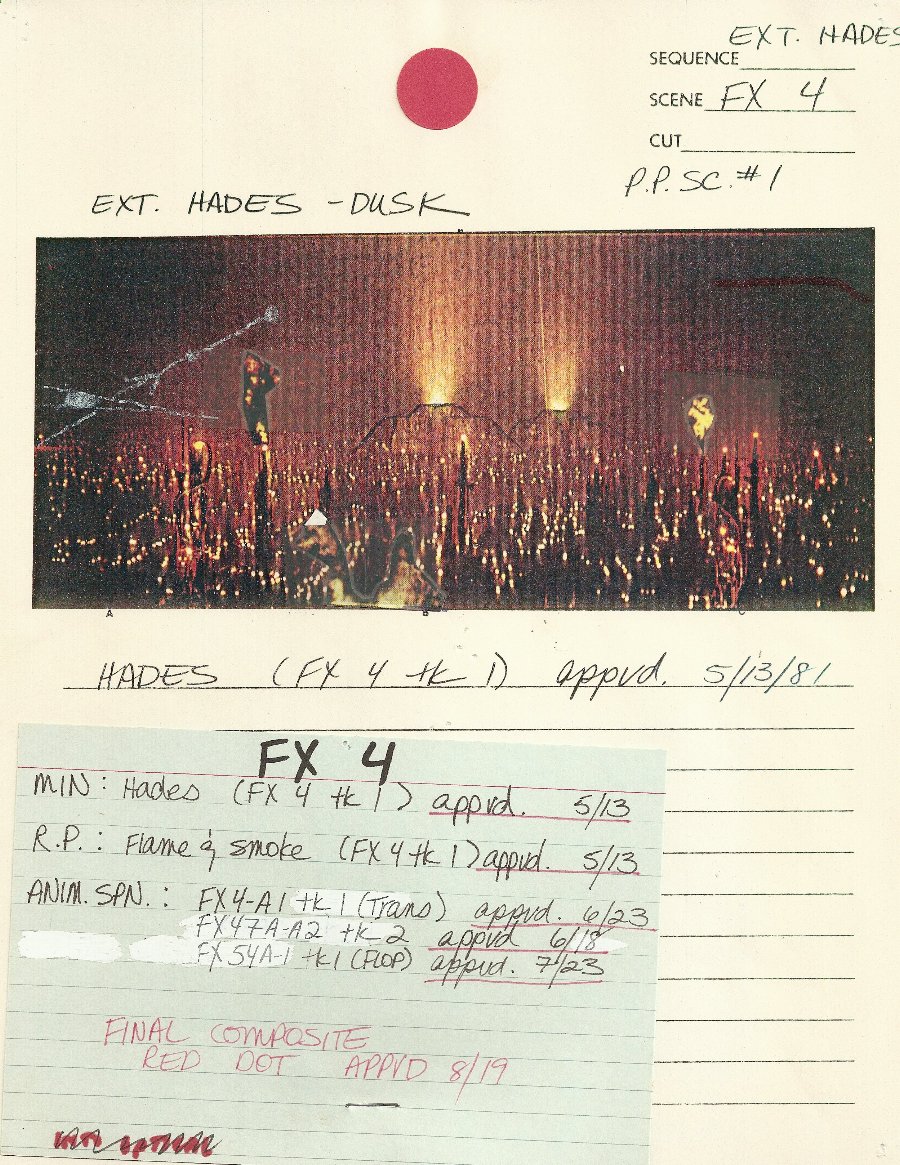 EXT. HADES
SEQUENCE
SCENE FX 4
CUT
P.P. SC. #1
EXT. HADES - DUSK
A B C
HADES (FX 4 tk 1) appvd. 5/13/81
FX 4
MIN: Hades (FX 4 tk 1) appvd. 5/13
R.P.: Flame & smoke (FX 4 tk 1) appvd. 5/13
ANIM. SPN.: FX4-A1 tk 1 (Trans) appvd. 6/23
FX47A-A2 tk 2 appvd 6/18
FX54A-1 tk 1 (FLOP) appvd. 7/23
FINAL COMPOSITE
RED DOT APPVD 8/19